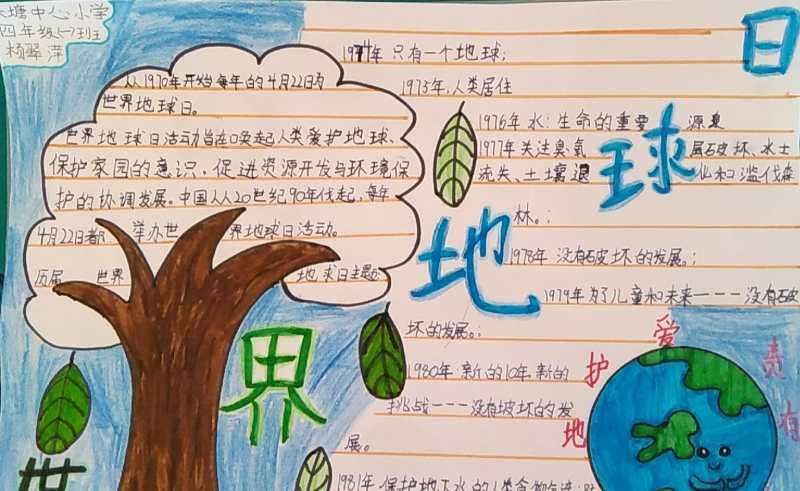 塘中心小学
四年级(一)班
杨翠萍
从1970年开始每年的4月22日为
世界地球日。
世界地球日活动旨在唤起人类爱护地球、
保护家园的意识,促进资源开发与环境保
护的协调发展。中国从20世纪90年代起,每年
4月22日都 举办世 界地球日活动。
历届 世界 地球日主题
世界地球日
1974年只有一个地球;
1975年,人类居住
1976年水:生命的重要 源泉
1977年关注臭氧 层破坏、水土
流失、土壤退 化和滥伐森
林。;
1978年 没有破坏的发展。;
1979年为了儿童和未来———没有破
坏的发展。;
1980年新的10年,新的
挑战———没有破坏的发
展。
1981年保护地下水的人类食物
爱护地 责有